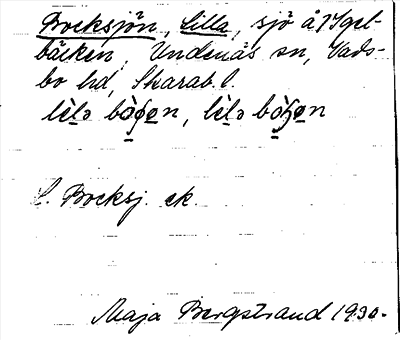 Bocksjön, Lilla, sjö å 7 Igel-
bäcken, Undenäs sn, Vads-
bo hd, Skarab. l.
lìlə , lìlə
L. Bocksj. ek.
Maja Bergstrand 1930.